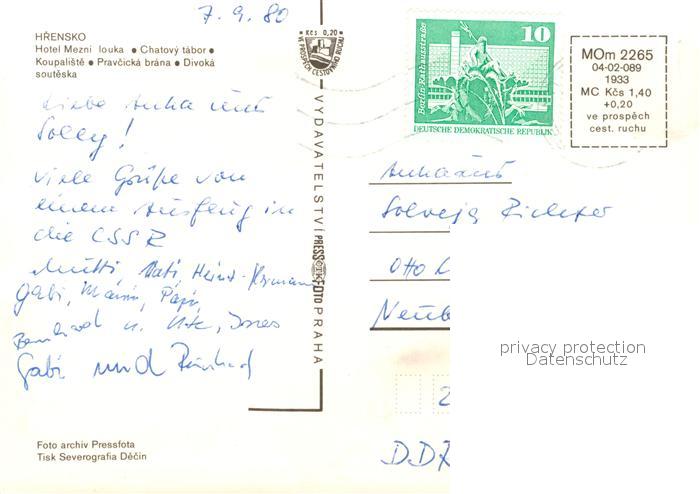 7.9.80
HŘENSKO
Hotel Mezní louka ● Chatový tábor ●
Koupaliště ● Pravčická brána ● Divoká
soutěska
Kčs 0,20
VE PROSPĚCH CESTOVNÍHO RUCHU
10
Berlin-Rathausstraße
DEUTSCHE DEMOKRATISCHE REPUBLIK
MOm 2265
04-02-089
1933
MC Kčs 1,40
+0,20
ve prospěch
cest. ruchu
Liebe und
Solvej!
viele Grüße von
einem Ausflug in
die CSSR
Mutti Vati Heinz-Hermann
Gabi,
u. Ines
Gabi und Reinhard
VYDAVATELSTVÍ PRESSFOTO PRAHA
Solveja Richter
Otto
Neub
2
DDR
privacy protection
Datenschutz
Foto archiv Pressfota
Tisk Severografia Děčín